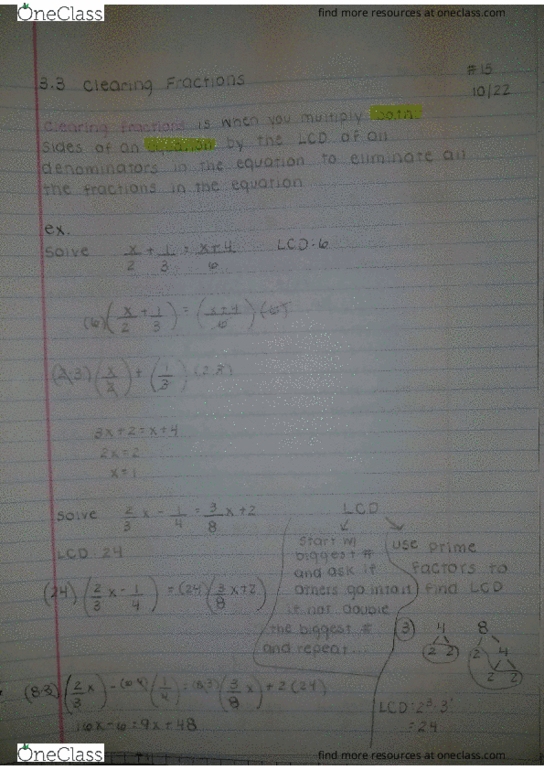 OneClass
find more resources at oneclass.com
3.3 Clearing Fractions
#15
10/22
Clearing fractions is when you multiply both
sides of an equation by the LCD of all
denominators in the equation to eliminate all
the fractions in the equation
ex.
Solve x/2 + 1/3 = x+4/6 LCD:6
(6)(x/2 + 1/3) = (x+4/6)(6)
(2·3)(x/2) + (1/3)(2·3)
3x+2=x+4
2x=2
x=1
Solve 2/3 x - 1/4 = 3/8 x+2
LCD 24
(24)(2/3 x - 1/4) = (24)(3/8 x+2)
(8·3)(2/3 x) - (1/4) = (8·3)(3/8 x) + 2(24)
16x-6=9x+48
LCD
Start w/
biggest #
and ask if
others go into it
if not double
the biggest #
and repeat...
use prime
factors to
find LCD
3 4 8
2 2 2 4
2 2
LCD:2³·3¹
=24
OneClass
find more resources at oneclass.com